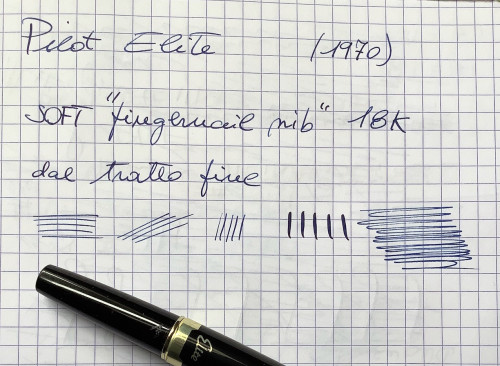 Pilot Elite (1970)
SOFT "fingernail nib" 18K
dal tratto fine
Elite